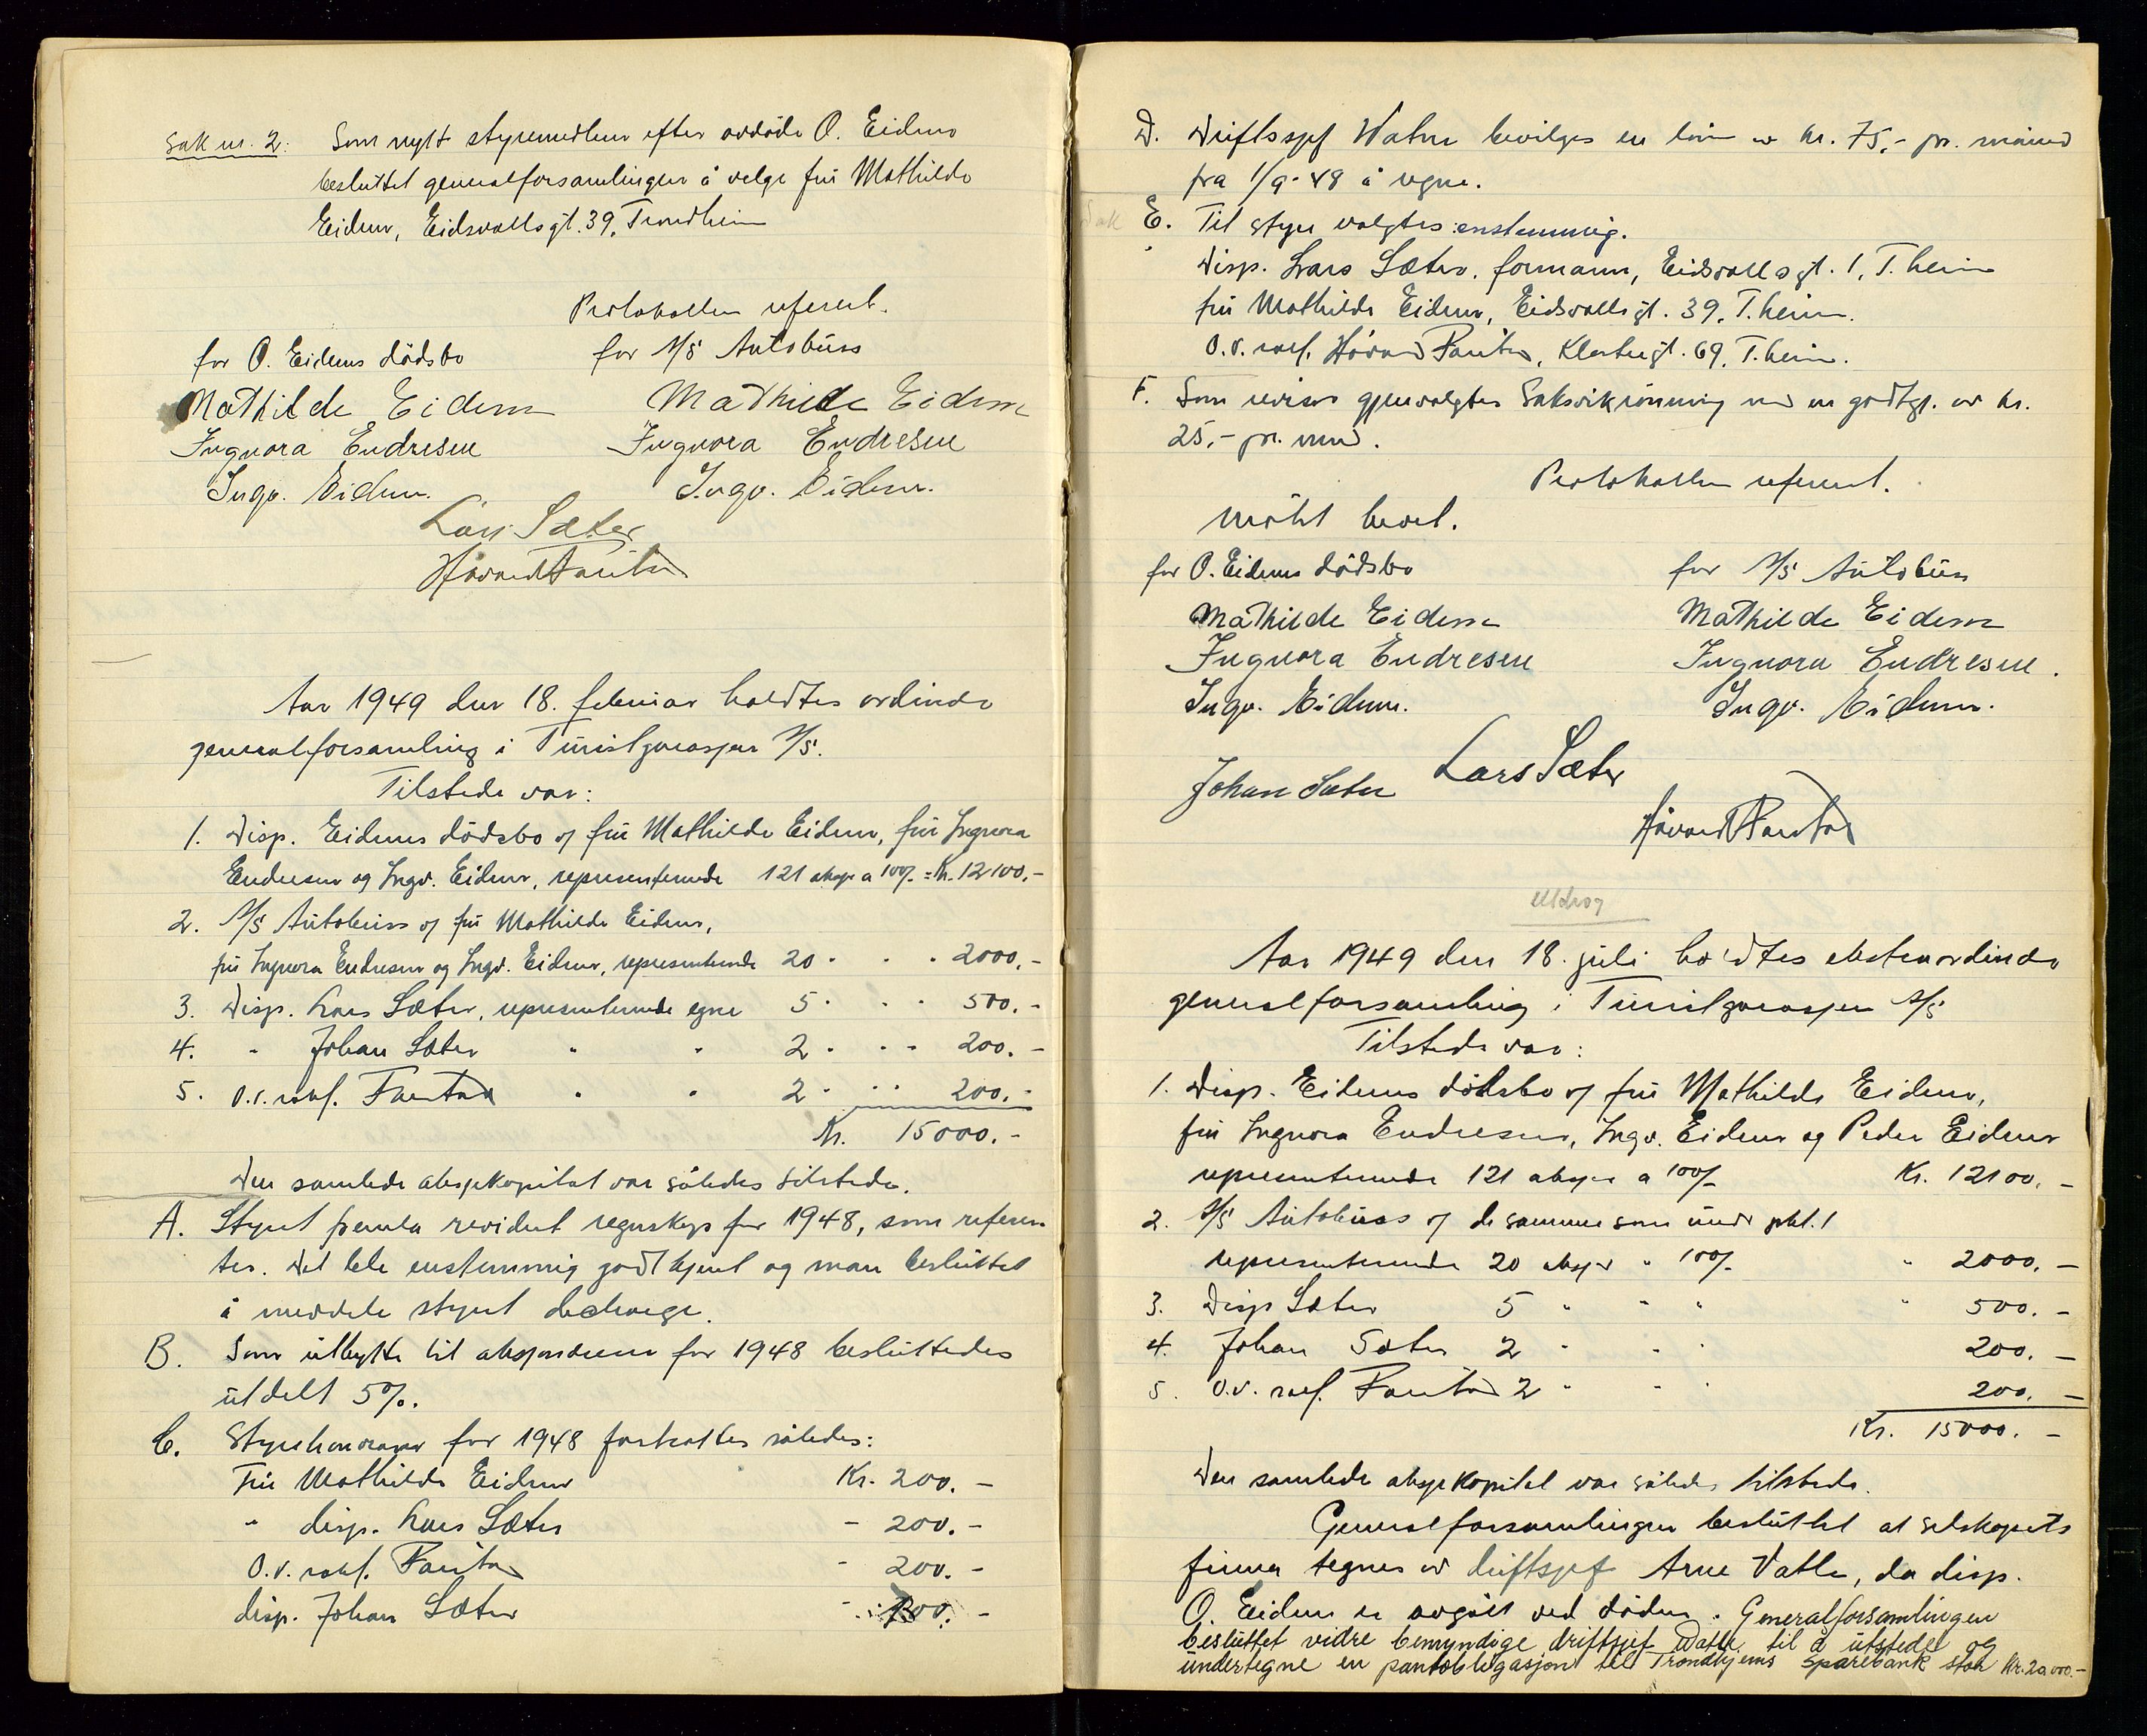 Sak nr. 2: Som nytt styremedlem efter avdöde O. Eidem
besluttet generalforsamlingen å velge frü Mathilde
Eidem, Eidsvollsgt. 39, Trondheim
Protokollen referert.
for O. Eidems dödsbo for A/S Autobüss
Mathilde Eidem Mathilde Eidem
Ingvora Endresen Ingvora Endresen
Ingv. Eidem. Ingv. Eidem.
Lars Sæter
Håvard
Aar 1949 den 18. februar holdtes ordinær
generalforsamling i Türistgarasjen A/S.
Tilstede var:
1. Disp. Eidems dödsbo v/ frü Mathilde Eidem, frü Ingvora
Endresen og Ingv. Eidem, representerende 121 aksjer a 100/- = Kr. 12100.-
2. A/S Autobuss v/ frü Mathilde Eidem,
frü Ingvora Endresen og Ingv. Eidem, representerende 20 " " " 2000.-
3. Disp. Lars Sæter, representerende egne 5 " " " 500.-
4. " Johan Sæter " " 2 " " " 200.-
5. O.r.sakf. " " 2 " " " 200.-
Kr. 15000.-
Den samlede aksjekapital var således tilstede.
A. Styret fremla revidert regnskap for 1948, som referer-
tes. Det ble enstemmig godkjent og man besluttet
å meddele styret decharge.
B. Som utbytte til aksjonærene for 1948 besluttedes
utdelt 5%.
C. Styrehonorarer for 1948 fastsattes således:
Frü Mathilde Eidem Kr. 200.-
" disp. Lars Sæter - 200.-
O.r.sakf. - 200.-
disp. Johan Sæter - 100.-
D. Driftssjef Watn bevilges en lönn av kr. 75.- pr. måned
fra 1/9-48 å regne.
Sak E. Til styre valgtes: enstemmig.
Disp. Lars Sæter, formann, Eidsvollsgt. 1, T.heim
frü Mathilde Eidem, Eidsvollsgt. 39, T.heim.
O.r.sakf. Håvard, Klostergt. 69, T.heim.
F. Som revisor gjenvalgtes Saksvikrönning med en godtgj. av kr.
25.- pr. mnd.
Protokollen referert.
Mötet hevet.
for O. Eidems dödsbo for A/S Autobüss
Mathilde Eidem Mathilde Eidem
Ingvora Endresen Ingvora Endresen.
Ingv. Eidem. Ingv. Eidem.
Johan Sæter Lars Sæter
Håvard
Utdrag
Aar 1949 den 18. jüli holdtes ekstraordinær
generalforsamling i Türistgarasjen A/S
Tilstede var:
1. Disp. Eidems dödsbo v/ frü Mathilde Eidem,
frü Ingvora Endresen, Ingv. Eidem og Peder Eidem
representerende 121 aksjer a 100/- Kr. 12100.-
2. A/S Autobüss v/ de samme som ünder pkt. 1
representerende 20 aksjer " 100/- " 2000.-
3. Disp Sæter 5 " " " " 500.-
4. Johan Sæter 2 " " " 200.-
5. O.r.sakf. 2 " " " 200.-
Kr. 15000.-
Den samlede aksjekapital var således tilstede.
Generalforsamlingen besluttet at selskapets
firma tegnes av driftsjef Arne Vatle, da disp.
O. Eidem er avgått ved döden. Generalforsamlingen
beslüttet vidre bemyndige driftsjef Watle til å ütstede og
ündertegne en pantobligasjon til Trondhjems Sparebank stor Kr. 20.000.-